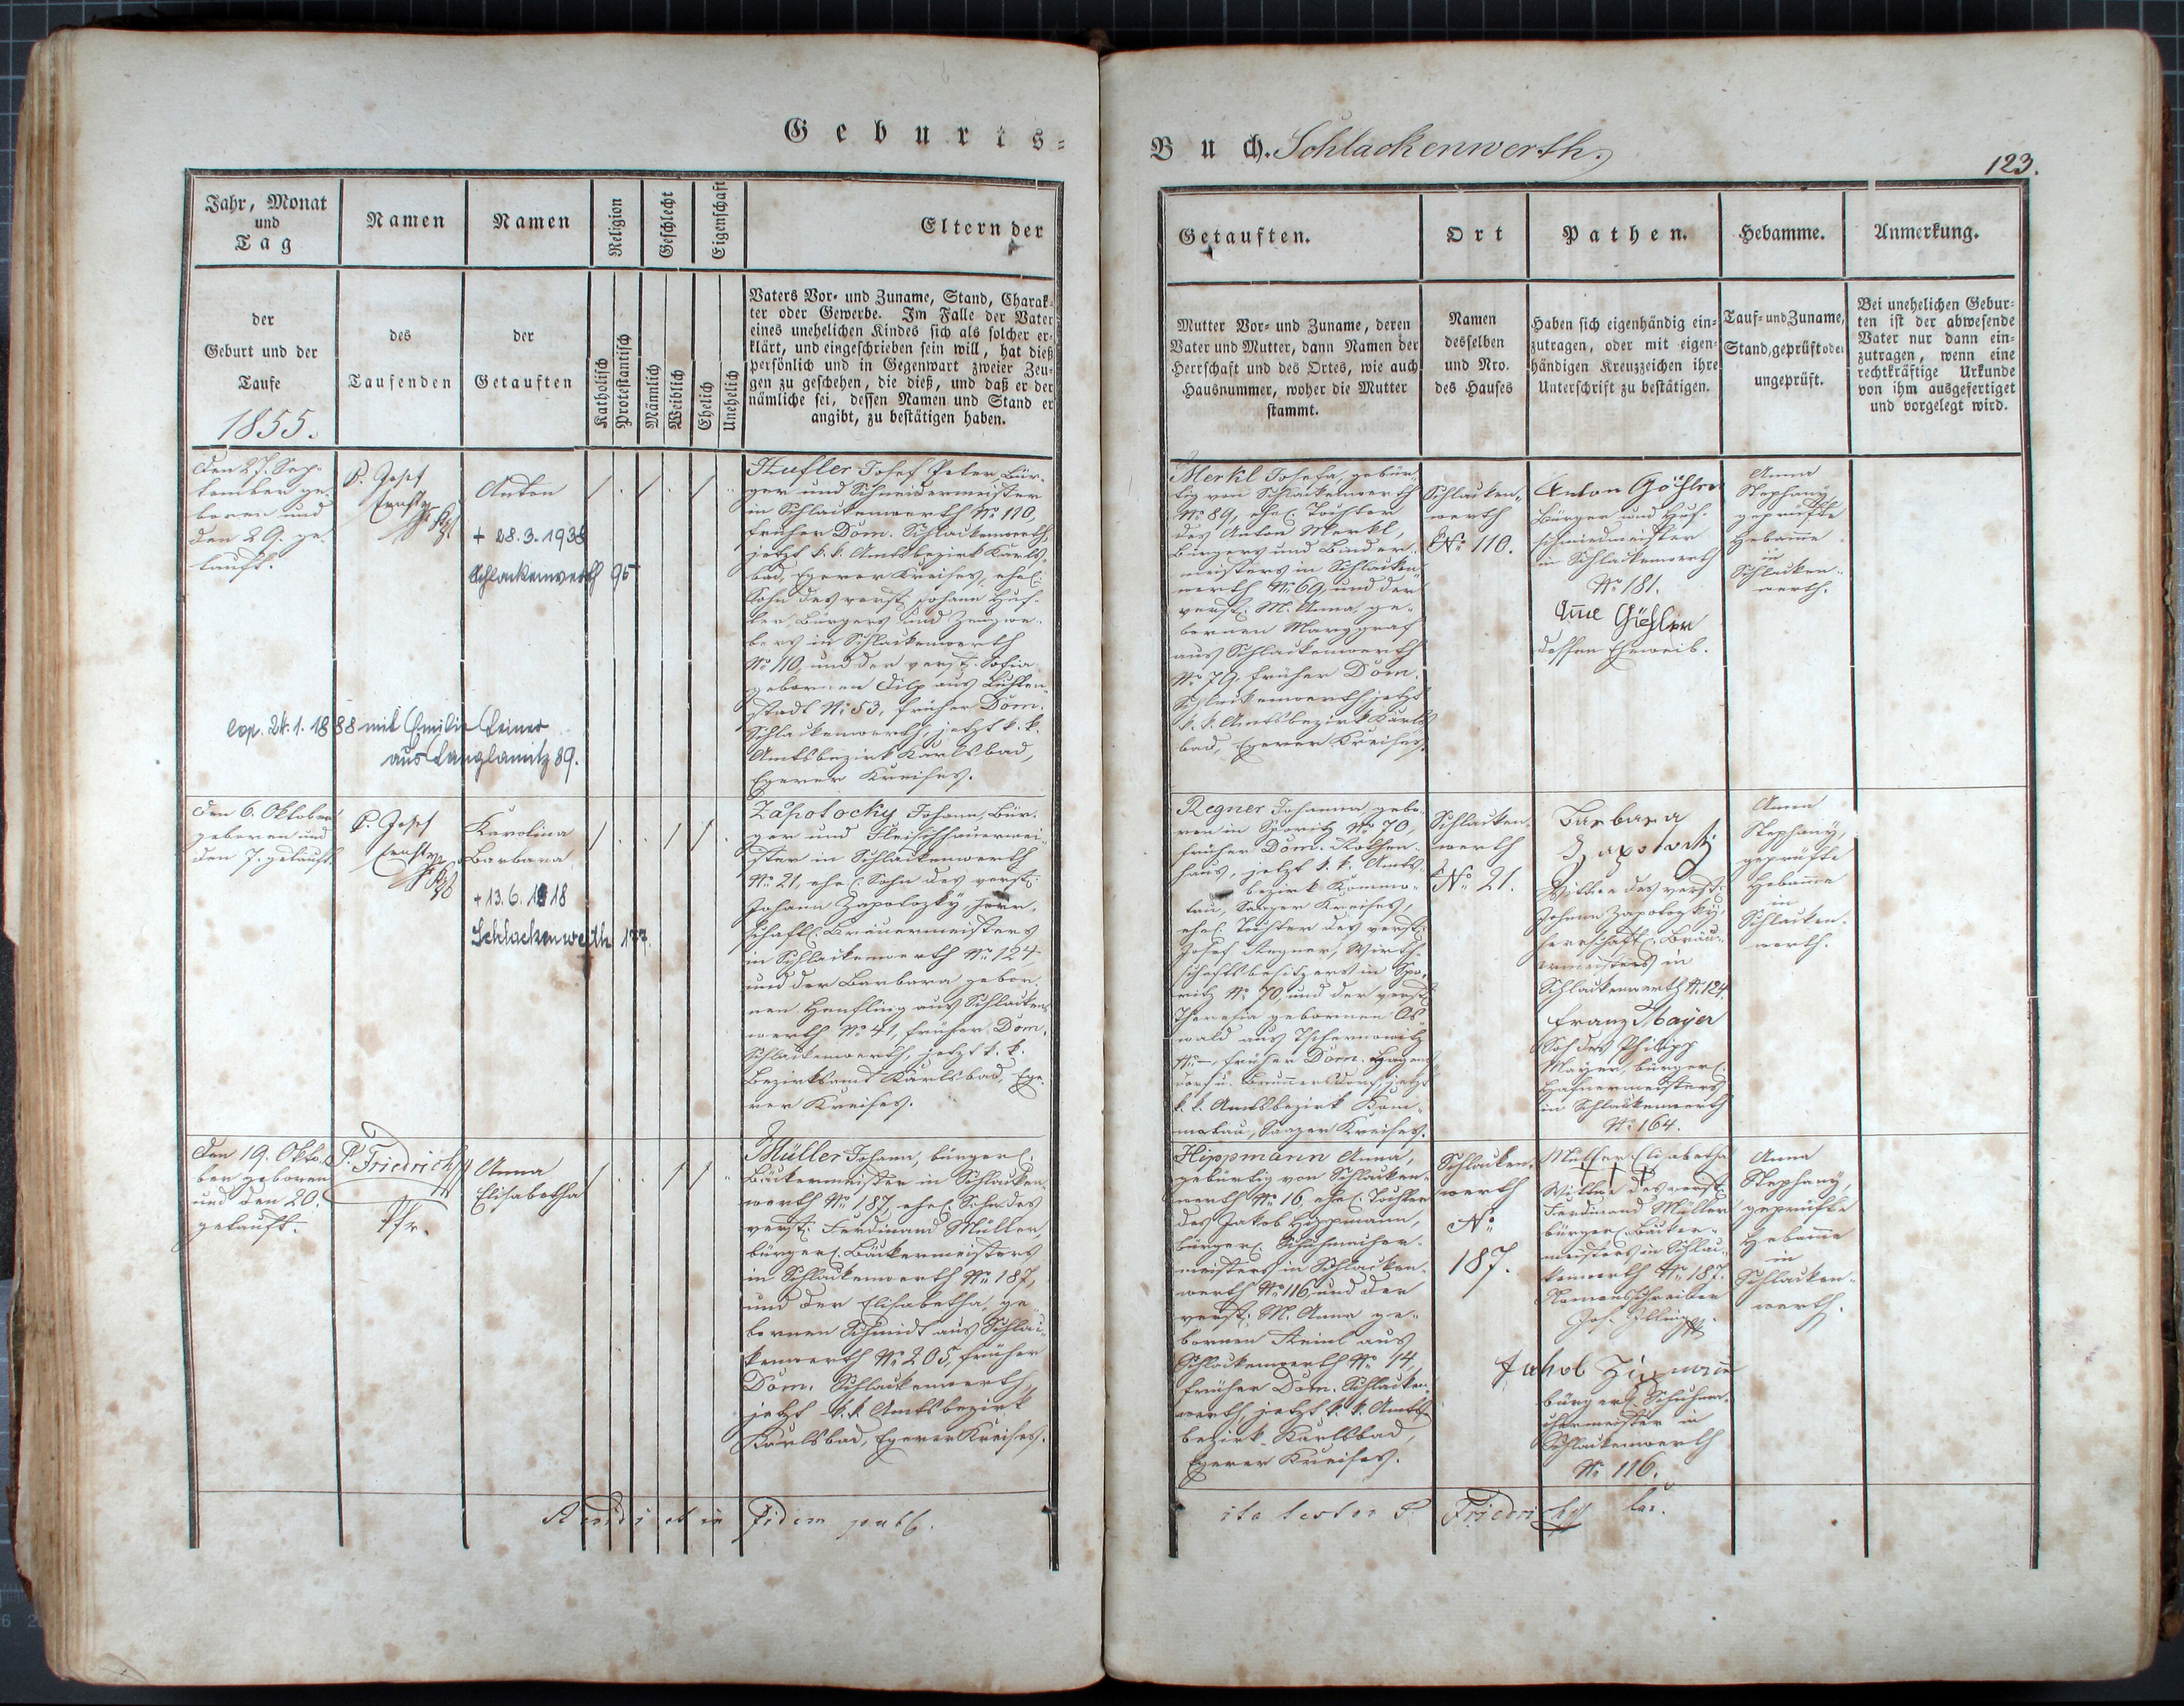 Geburts=
Buch. Schlackenwerth.
123.
Jahr, Monat
und
Tag
Namen
Namen
Religion
Geschlecht
Eigenschaft
Eltern der
der
Geburt und der
Taufe
1855.
des
Taufenden
der
Getauften
Katholisch
Protestantisch
Männlich
Weiblich
Ehelich
Unehelich
Vaters Vor- und Zuname, Stand, Charak-
ter oder Gewerbe. Im Falle der Vater
eines unehelichen Kindes sich als solcher er-
klärt, und eingeschrieben sein will, hat dieß
persönlich und in Gegenwart zweier Zeu-
gen zu geschehen, die dieß, und daß er der
nämliche sei, dessen Namen und Stand er
angibt, zu bestätigen haben.
Getauften.
Ort
Pathen.
Hebamme.
Anmerkung.
Mutter Vor- und Zuname, deren
Vater und Mutter, dann Namen der
Herrschaft und des Ortes, wie auch
Hausnummer, woher die Mutter
stammt.
Namen
desselben
und Nro.
des Hauses
Haben sich eigenhändig ein-
zutragen, oder mit eigen-
händigen Kreuzzeichen ihre
Unterschrift zu bestätigen.
Tauf- und Zuname,
Stand, geprüft oder
ungeprüft.
Bei unehelichen Gebur-
ten ist der abwesende
Vater nur dann ein-
zutragen, wenn eine
rechtkräftige Urkunde
von ihm ausgefertiget
und vorgelegt wird.
Den 27. Sep-
tember ge-
boren und
den 29. ge-
tauft.
P. Josef
Anton
+ 28.3.1938
Schlackenwerth 95
cop. 24.1.1888 mit Emilie
aus Langlamitz 89.
Hufler Josef Peter, Bür-
ger und Schneidermeister
in Schlackenwerth No 110,
früher Dom. Schlackenwerth,
jetzt k. k. Amtsbezirk Karls-
bad, Egerer Kreises, ehel.
Sohn des verst. Johann Huf-
ler, Bürgers und Zeugwe-
bers in Schlackenwerth
No 110, und der verst. Sofia
gebornen Dilp aus Lichten-
stadt No 53, früher Dom.
Schlackenwerth, jetzt k. k.
Amtsbezirk Karlsbad,
Egerer Kreises.
Merkl Josefa, gebür-
tig von Schlackenwerth
No 89, ehel. Tochter
des Anton Merkl,
Bürgers und Binder-
meisters in Schlacken-
werth No 69, und der
verst. M. Anna, ge-
bornen Marggraf
aus Schlackenwerth
No 79, früher Dom.
Schlackenwerth, jetzt
k. k. Amtsbezirk Karls-
bad, Egerer Kreises.
Schlacken-
werth
No 110.
Anton Göhler
Bürger und Huf-
schmiedmeister
in Schlackenwerth
No 181.
Göhler
dessen Eheweib.
Anna
Stephany
geprüfte
Hebamme
in
Schlacken-
werth.
Den 6. Oktober
geboren und
den 7. getauft
P. Josef
Karolina
Barbara
+ 13.6.1918
Schlackenwerth 177.
Zapotocky Johann, Bür-
ger und Fleischhauermei-
ster in Schlackenwerth
No 21, ehel. Sohn des verst.
Johann Zapotozky, herr-
schaftl. Bräuermeisters
in Schlackenwerth No 124
und der Barbara gebor-
nen Henfling aus Schlacken-
werth No 41, früher Dom.
Schlackenwerth, jetzt k. k.
Bezirksamt Karlsbad, Ege-
rer Kreises.
Regner Johanna gebo-
ren in Sporitz No 70,
früher Dom. Rothen-
haus, jetzt k. k. Amts-
bezirk Kommo-
tau, Saazer Kreises,
ehel. Tochter des verst.
Josef Regner, Wirth-
schaftsbesitzers in Spo-
ritz No 70 und der verst.
Theresia gebornen Os-
wald aus Tschernowitz
No —, früher Dom. Hagens-
dorf u. Brunnersdorf, jetzt
k. k. Amtsbezirk Kom-
motau, Saazer Kreises.
Schlacken-
werth
No 21.
Barbara
Zapototzki
Wittwe des verst.
Johann Zapotozky,
herrschaftl. Bräu-
ermeisters in
Schlackenwerth No 124.
Franz Mayer
Sohn des Philipp
Mayer, bürgerl.
Hafnermeisters
in Schlackenwerth
No 164.
Anna
Stephany,
geprüfte
Hebamme
in
Schlacken-
werth.
Den 19. Okto-
ber geboren
und den 20.
getauft.
P. Friedrich
Pfr.
Anna
Elisabetha
Müller Johann, bürgerl.
Bäckermeister in Schlacken-
werth No 187, ehel. Sohn des
verst. Ferdinand Müller,
bürgerl. Bäckermeisters
in Schlackenwerth No 187,
und der Elisabetha, ge-
bornen Schmidt aus Schla-
kenwerth No 205, früher
Dom. Schlackenwerth,
jetzt k. k. Amtsbezirk
Karlsbad, Egerer Kreises.
Hippmann Anna,
gebürtig von Schlacken-
werth No 16 ehel. Tochter
des Jakob Hippmann,
bürgerl. Schuhmacher-
meisters in Schlacken-
werth No 116, und der
verst. M. Anna ge-
bornen Heinl aus
Schlackenwerth No 14,
früher Dom. Schlacken-
werth, jetzt k. k. Amts-
bezirk Karlsbad,
Egerer Kreises.
Schlacken-
werth
No
187.
Müller Elisabetha
+++
Wittwe des verst.
Ferdinand Müller
bürgerl. Bäcker-
meisters in Schla-
kenwerth No 187.
Namensschreiber
Jos.
Jakob
bürgerl. Schuhma-
chermeister in
Schlackenwerth
No 116.
Anna
Stephany,
geprüfte
Hebamme
in
Schlacken-
werth.
et in Fidem publ.
ita testor P. Friedrich